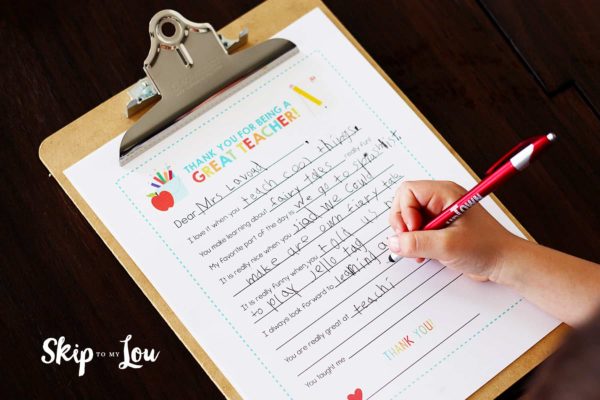 THANK YOU FOR BEING A
GREAT TEACHER!
Dear Mrs
I love it when you teach cool things.
You make learning about fairy tales really fun!
My favorite part of the day is we go to
It is really nice when you
make are own fairy tale
It is really funny when you told us
to play jello tag
I always look forward to learning a
You are really great at teachi
You taught me
THANK YOU!
SKIP TO MY Lou